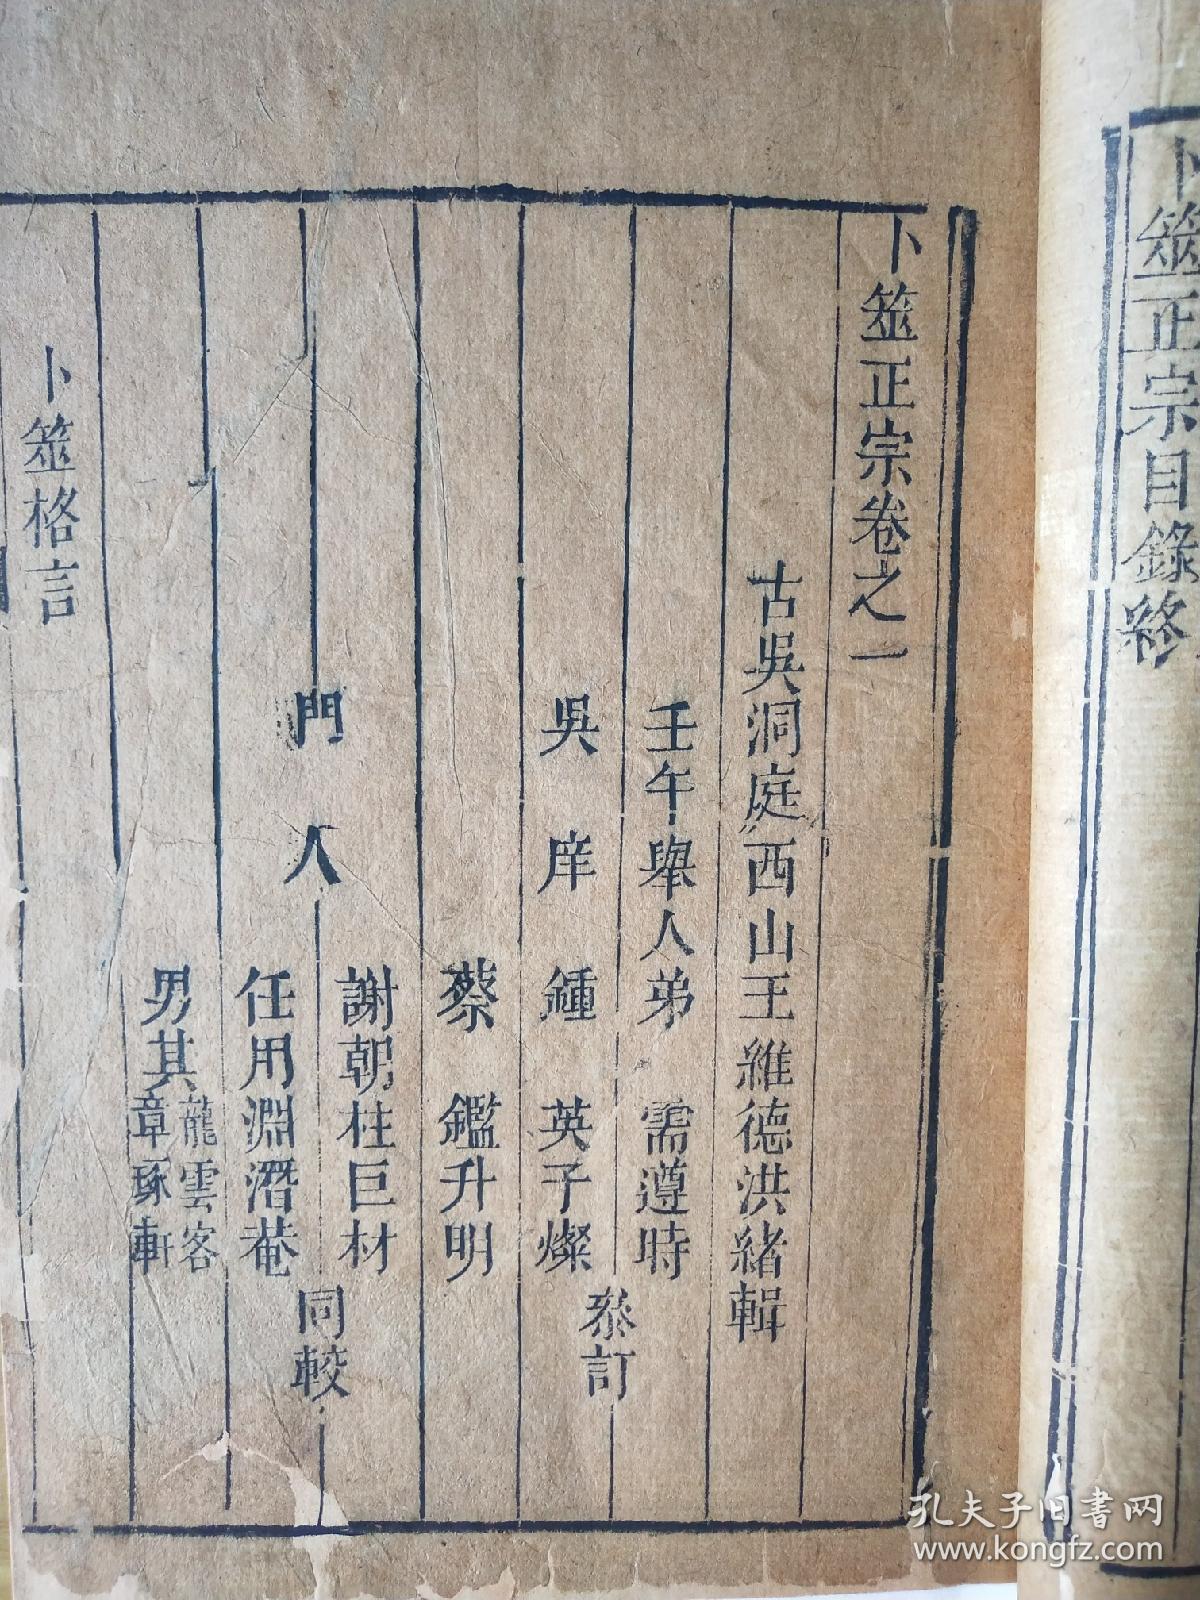 卜筮正宗目錄終
卜筮正宗卷之一
古吳洞庭西山王維德洪緒輯
壬午舉人弟 需遵時
吳庠 鍾 英子燦
叅訂
蔡 鑑升明
謝朝柱巨材
門人
任用淵潛菴
同較
男其龍雲客
章琢軒
卜筮格言
孔夫子旧书网
www.kongfz.com